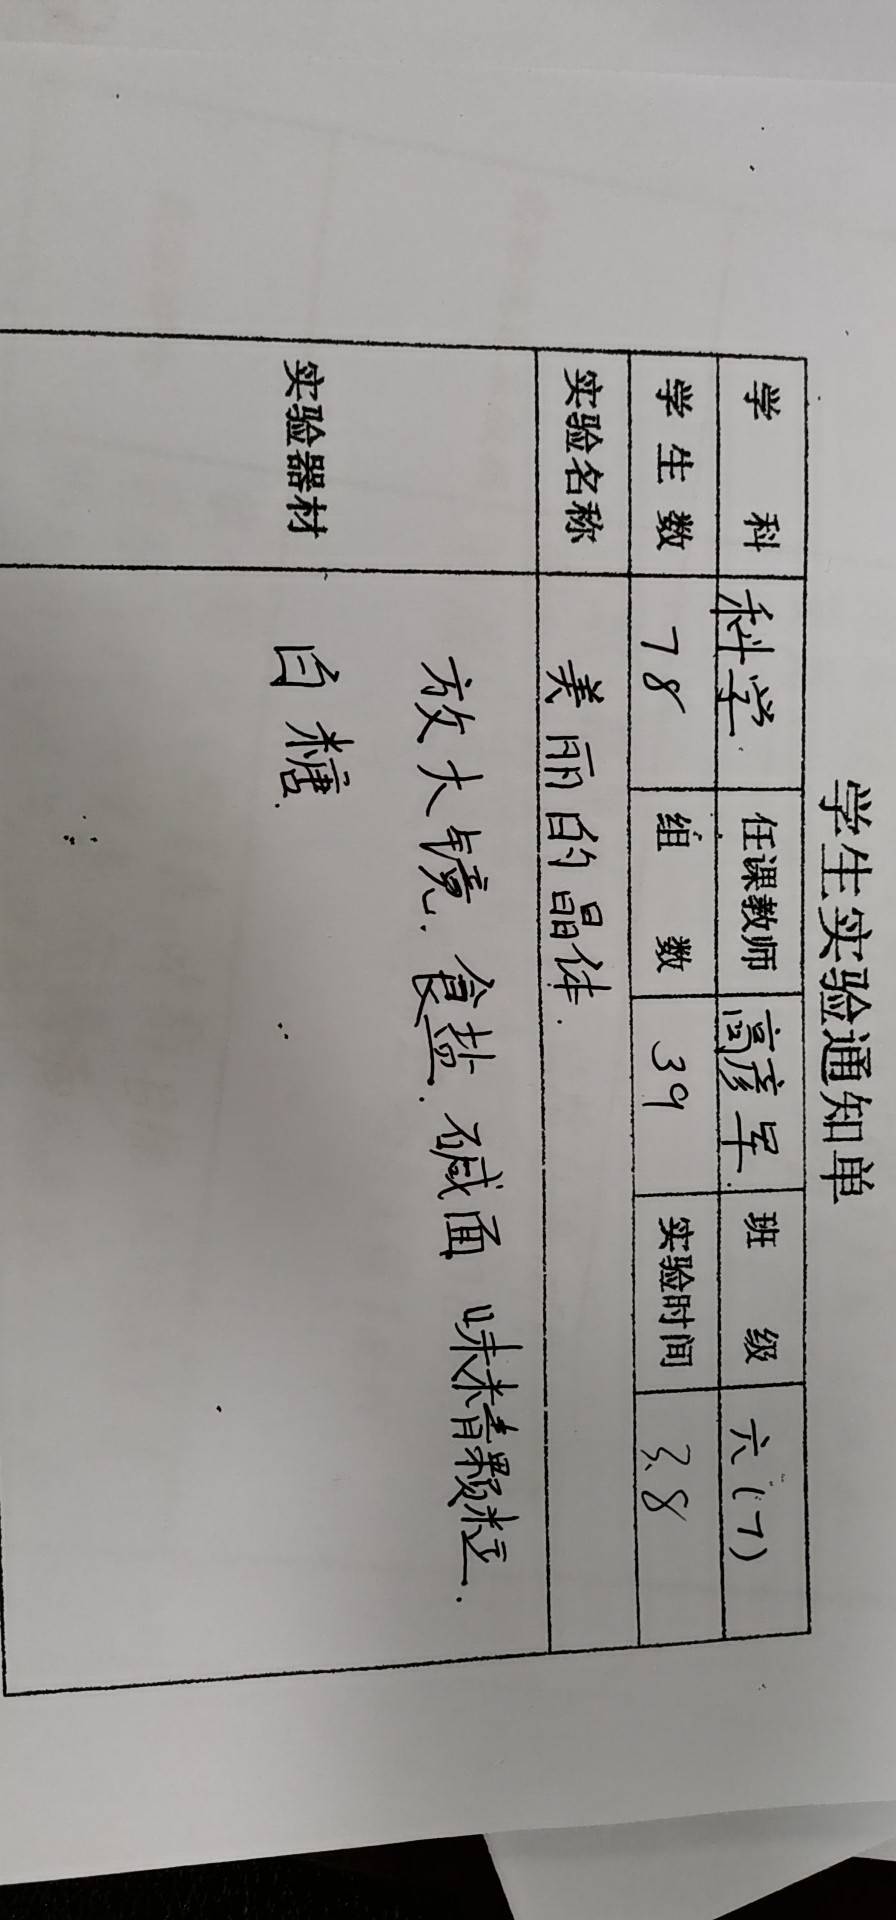 学生实验通知单
学科 科学 任课教师 高彦军 班级 六(7)
学生数 78 组数 39 实验时间 3.8
实验名称 美丽的晶体.
实验器材 放大镜. 食盐. 碱面 味精颗粒.
白糖.